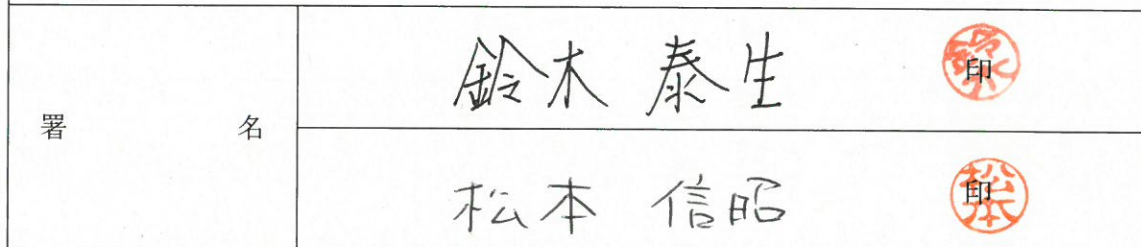 署名
鈴木 泰生 印
松本 信昭 印